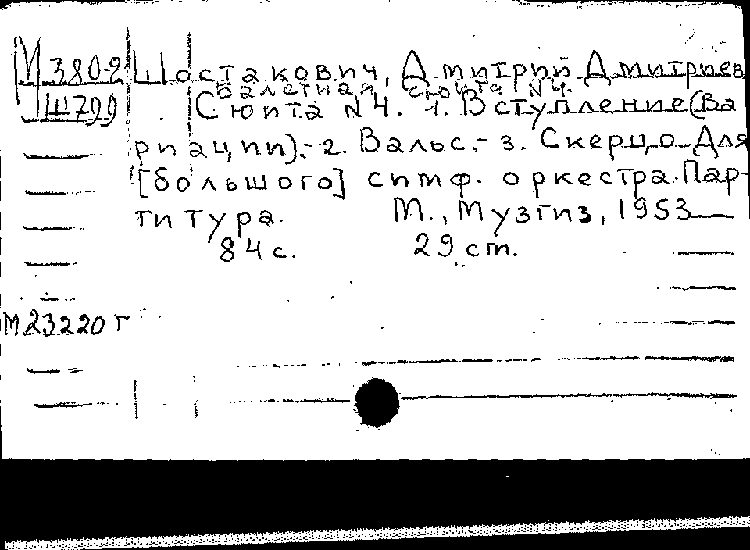 М 380-2 Шостакович, Дмитрий Дмитриев
Балетная сюита №4.
Ш799 Сюита №4. 1. Вступление (Ва
риации).- 2. Вальс.- 3. Скерцо. Для
[большого] симф. оркестра. Пар-
титура. М., Музгиз, 1953
84 с. 29 см.
М23220 г